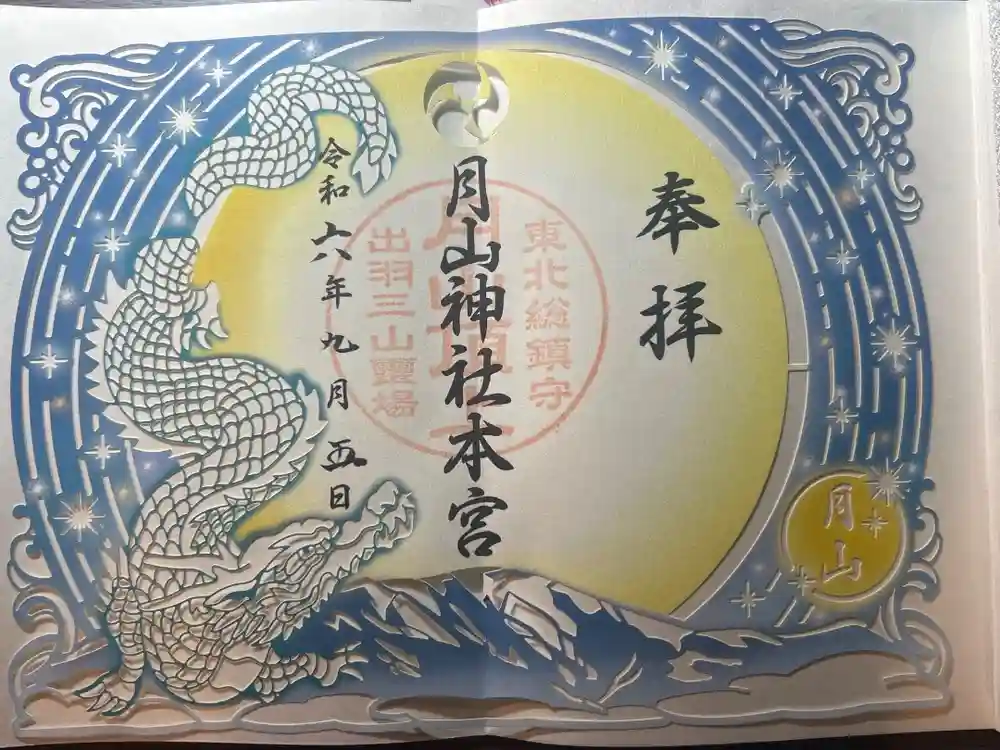 奉拝
東北総鎮守
月山神社本宮
出羽三山霊場
令和六年九月五日
月山